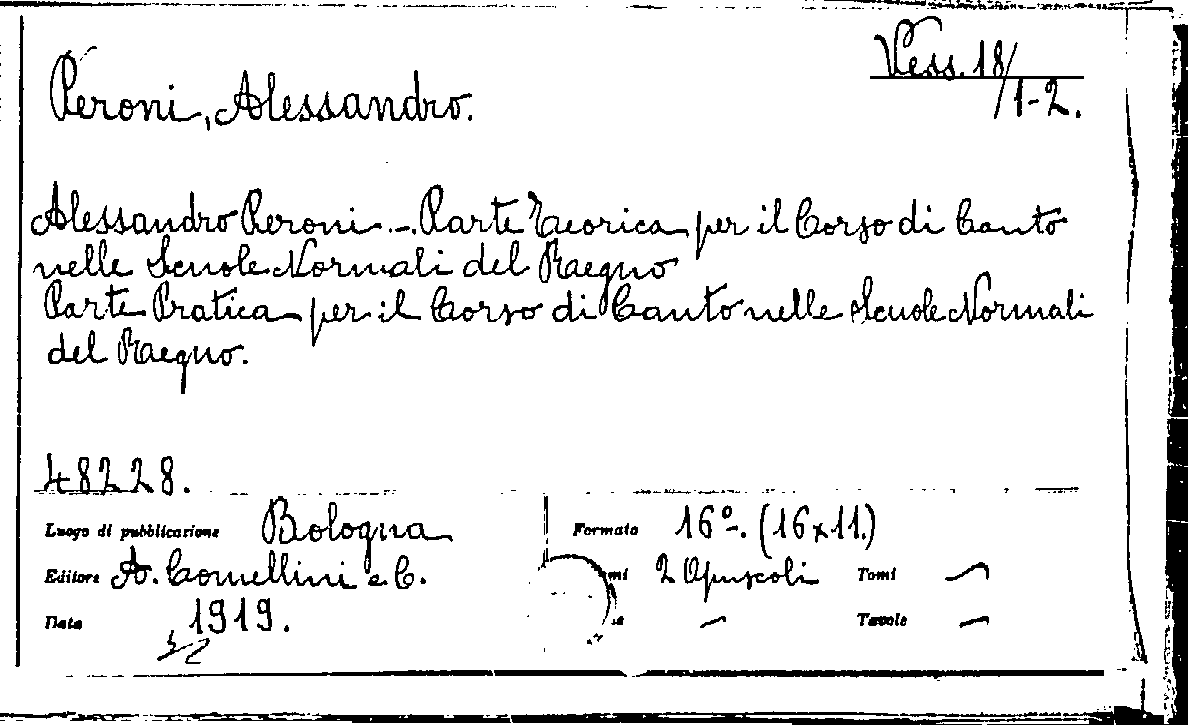 Vess. 18/
/1-2.
Peroni, Alessandro.
Alessandro Peroni. - Parte Teorica per il Corso di Canto
nelle Scuole Normali del Raegno
Parte Pratica per il Corso di Canto nelle Scuole Normali
del Raegno.
48228.
Luogo di pubblicazione Bologna Formato 16º. (16x11.)
Editore A. Comellini e C. 2 Opuscoli Tomi —
Data 1919. — Tavole —